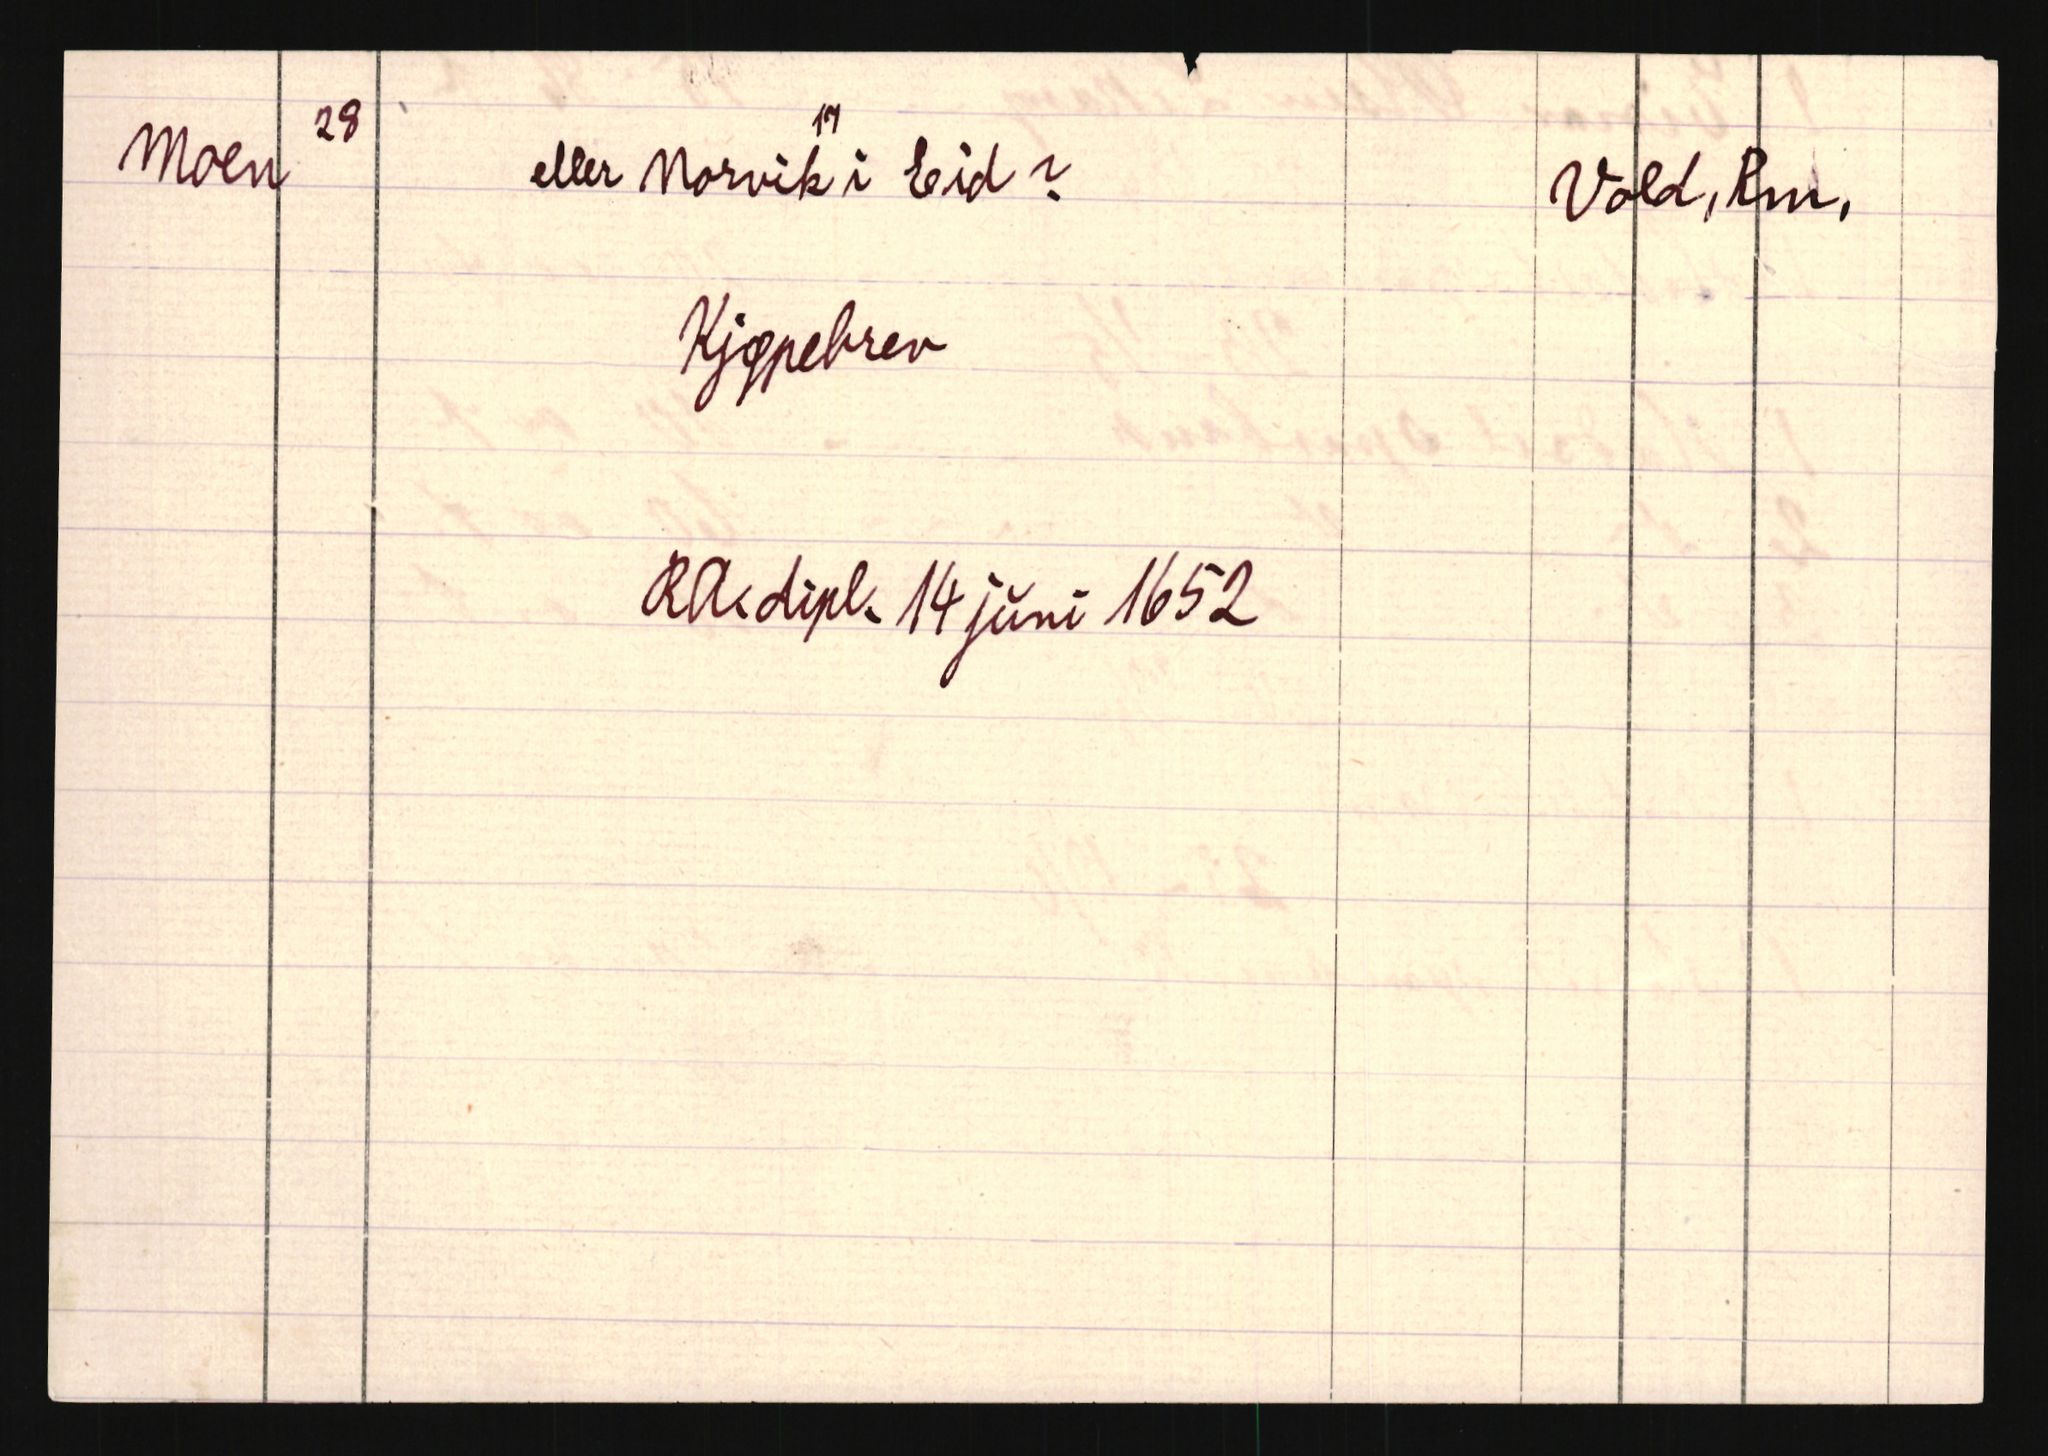 Moen 28 eller Norvik 17 i Eid? Vold, Rm,
Kjøpebrev
RA. dipl. 14 juni 1652